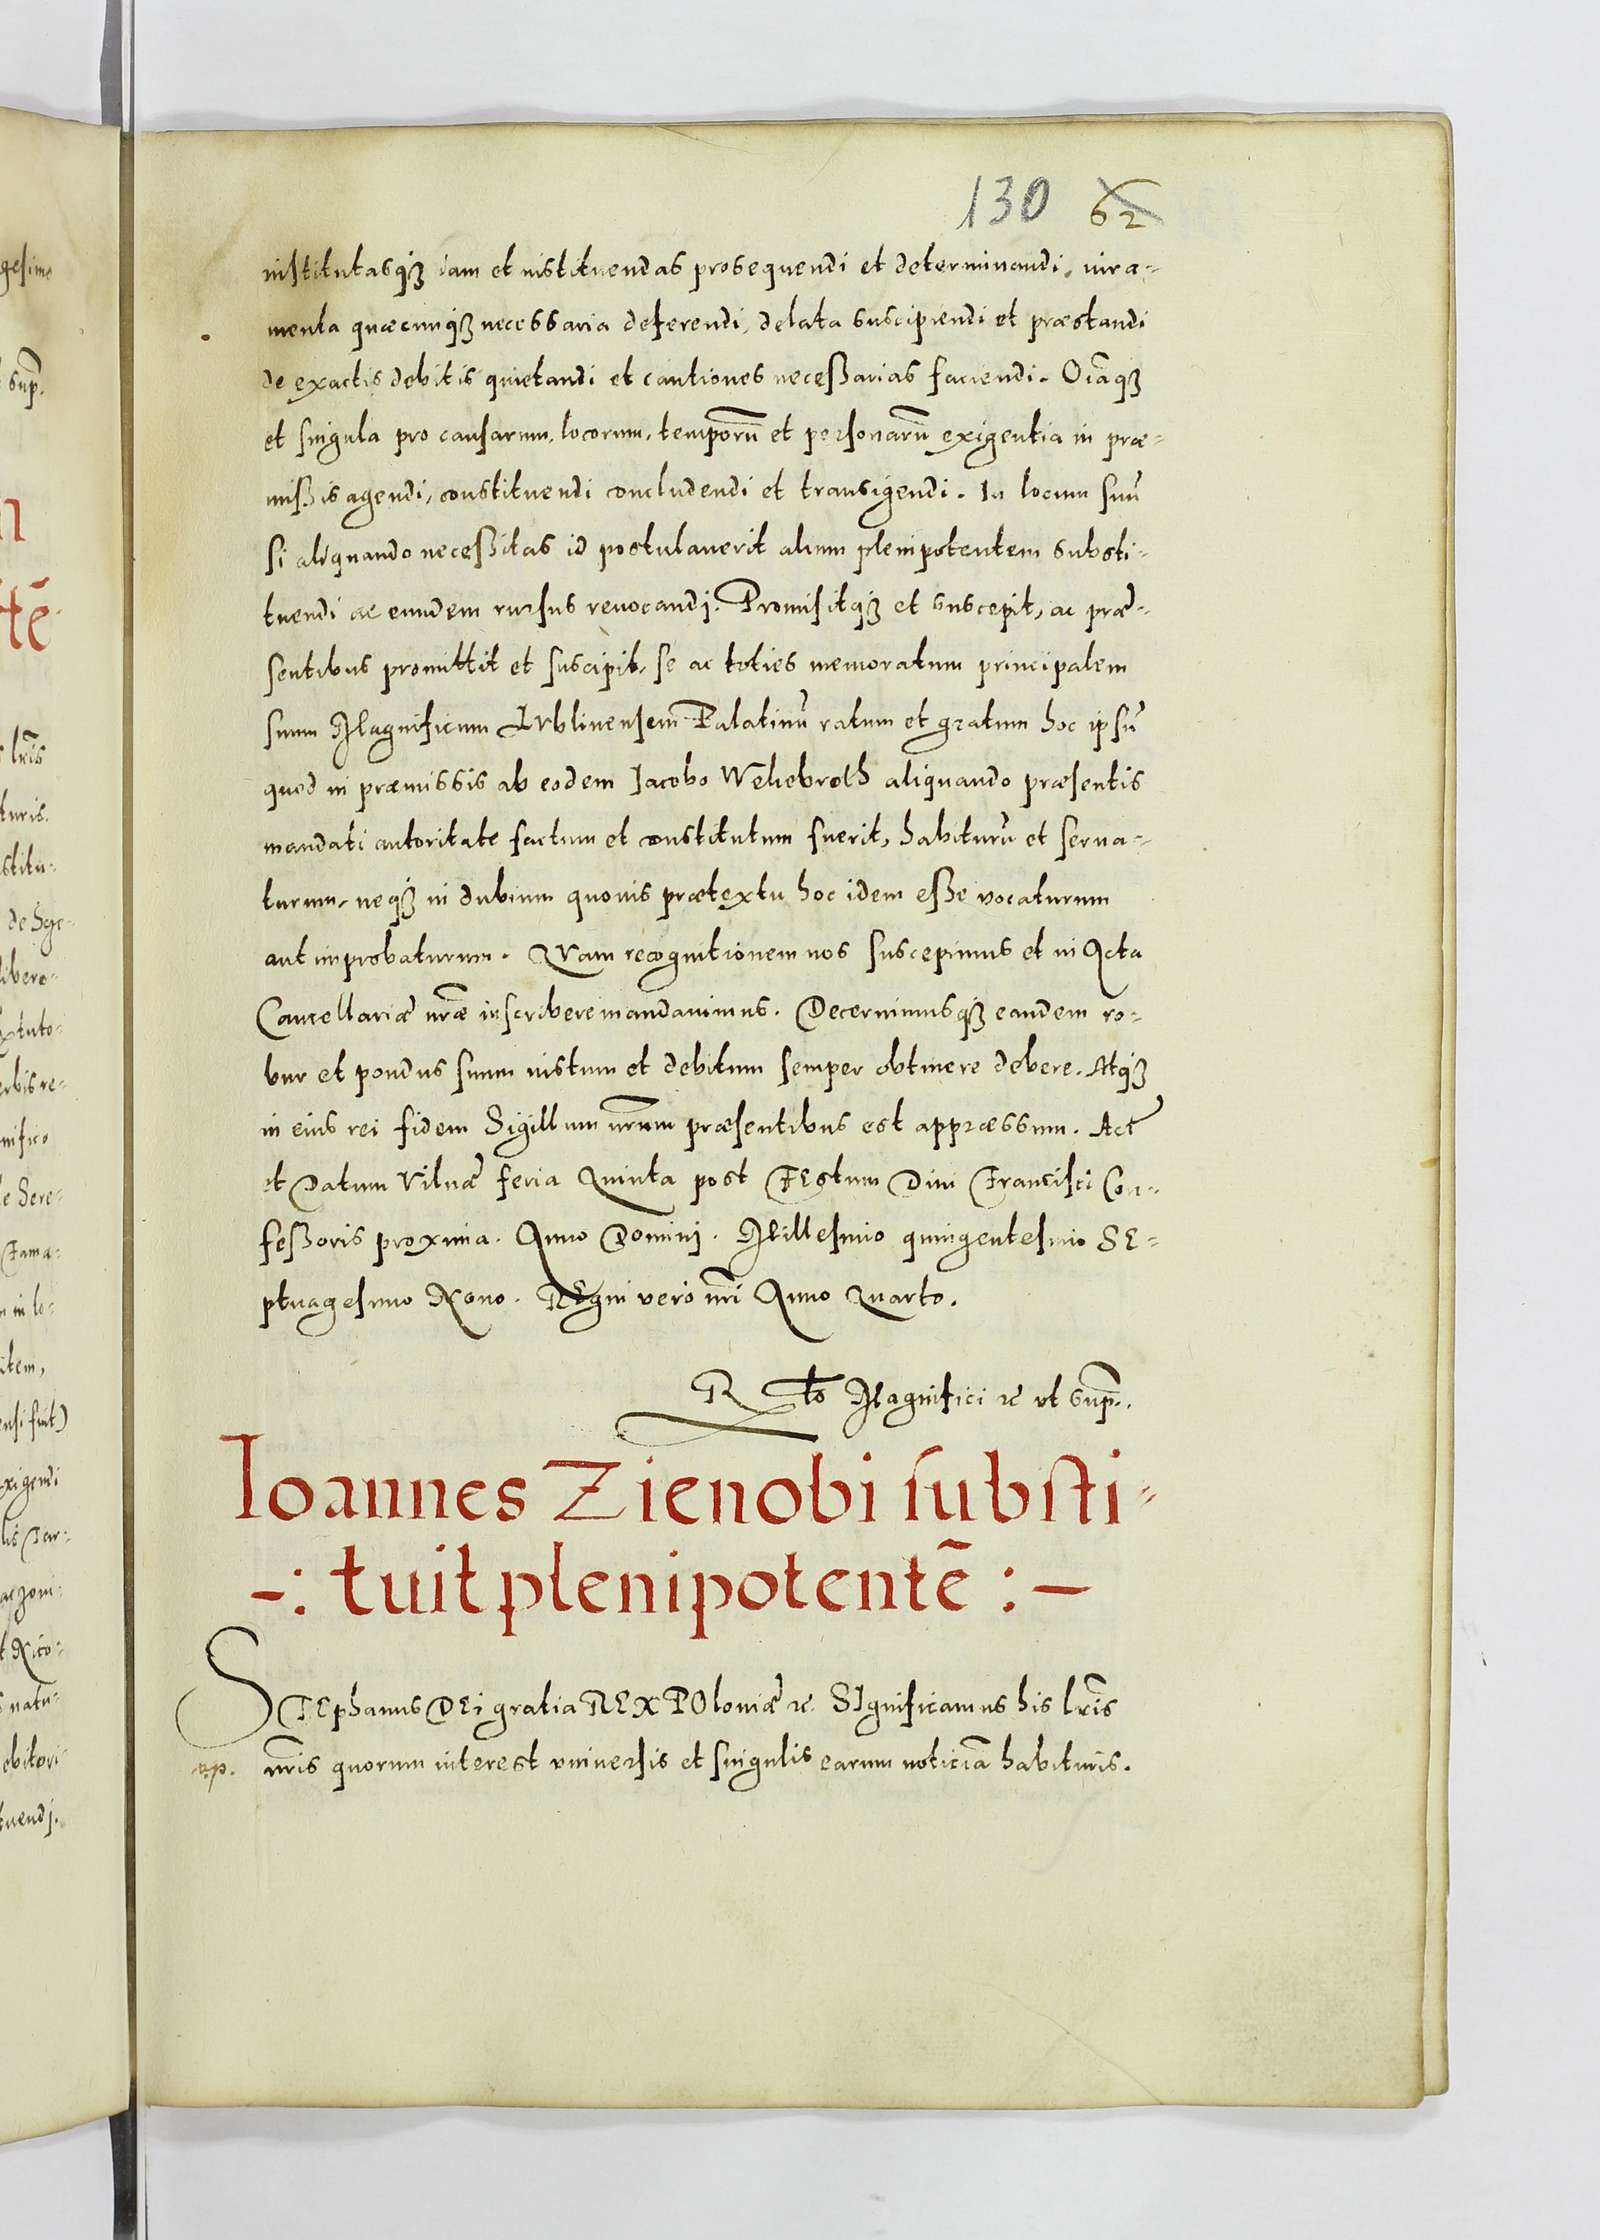 130 62
institutasqꝫ iam et instituendas prosequendi et determinandi, iura-
menta quæcunqꝫ necessaria deferendi, delata suscipiendi et præstandi
de exactis debitis quietandi et cautiones neceßarias faciendi. Oĩaqꝫ
et singula pro causarum, locorum, temporũ et personarũ exigentia in præ-
mißis agendi, constituendi concludendi et transigendi. In locum suũ
si aliquando neceßitas id postulauerit alium plenipotentem substi-
tuendi ac eundem rursus reuocandj. Promisitqꝫ et suscepit, ac præ-
sentibus promittit et suscipit, se ac toties memoratum principalem
suum Magnificum Lublinensem Palatinũ ratum et gratum hoc ipsũ
quod in præmissis ab eodem Jacobo Weliebroth aliquando præsentis
mandati autoritate factum et constitutum fuerit, habiturũ et serua-
turum, neqꝫ in dubium quouis prætextu hoc idem eße vocaturum
aut improbaturum. Quam recognitionem nos suscepimus et in Acta
Cancellariæ nr̃æ inscribere mandauimus. Decernimusqꝫ eandem ro-
bur et pondus suum iustum et debitum semper obtinere debere. Atqꝫ
in eius rei fidem Sigillum nr̃um præsentibus est appræssum. Act̃
et Datum Vilnæ feria Quinta post FEstum Diui Francisci Con-
feßoris proxima. Anno Dominj. Millesimo quingentesimo SE-
ptuagesimo Nono. REgni vero nr̃i Anno Quarto.
R to Magnifici ꝛc̃ vt sup̃.
Ioannes Zienobi substi-
-: tuit plenipotentẽ :-
STEphanus DEi gratia REX POloniæ ꝛc̃. SIgnificamus his lr̃is
np. nr̃is quorum interest vniuersis et singulis earum noticiã habituris.
gesimo
sup̃.
n
tẽ
lr̃is
turis.
stitu-
de Sge-
libero-
extuto-
erbis re-
nifico
le Sere-
Fama-
m in lo-
item,
ensi fuit)
exigendi
lis Ter-
t Nico-
s natu-
debitori
tuendj.